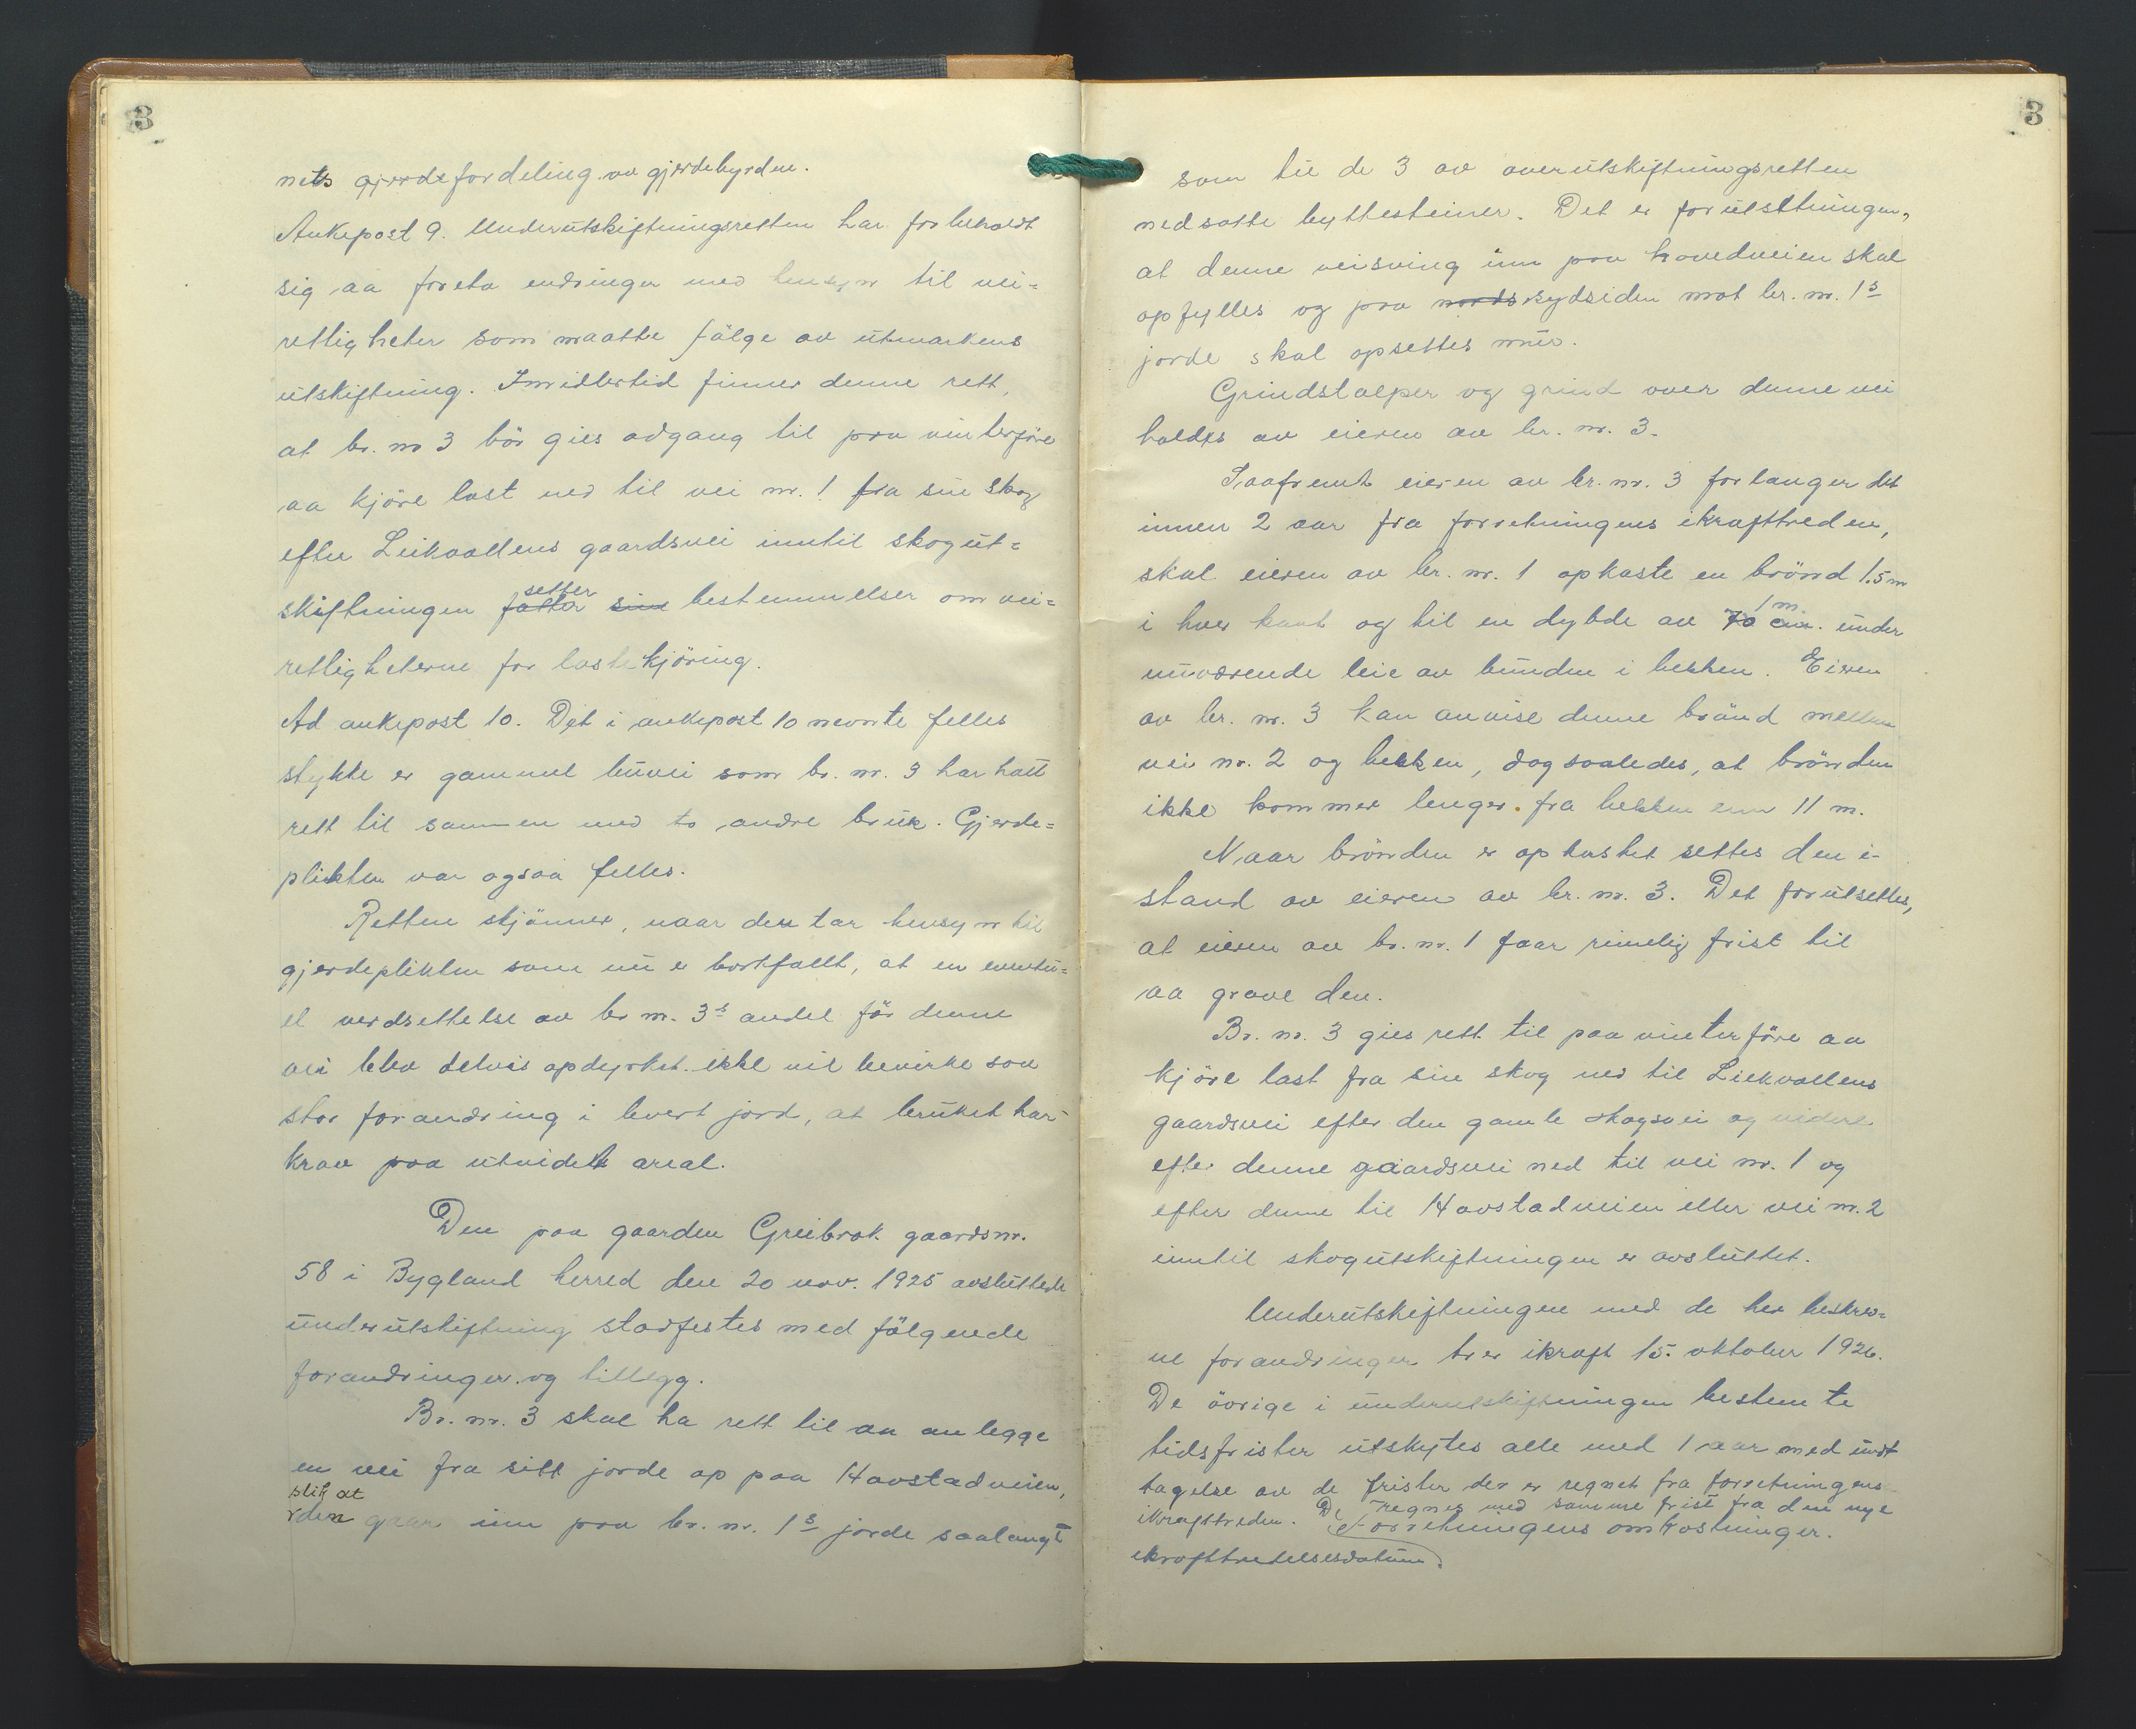 3
nets gjerdefordeling av gjerdebyrden.
Ankepost 9. Underutskiftningsretten har forbeholdt
sig aa foreta endringer med hensyn til vei=
rettigheter som maatte fölge av utmarkens
utskiftning. Imidlertid finner denne rett,
at br. nr 3 bör gies adgang til paa vinterföre
aa kjöre last ned til vei nr. 1 fra sin skog
efter Leikvollens gaardsvei inntil skogut=
skiftningen fatter setter sine bestemmelser om vei=
rettigheterne for lastekjöring.
Ad ankepost 10. Det i ankepost 10 nevnte felles
stykke er gammel buvei som br. nr. 3 har hatt
rett til sammen med to andre bruk. Gjerde=
plikten var ogsaa felles.
Retten skjönner, naar den tar hensyn til
gjerdeplikten som nu er bortfallt, at en eventu=
el verdsettelse av br nr. 3s andel för denne
vei blev delvis opdyrket ikke vil bevirke saa
stor forandring i levert jord, at bruket har
krav paa utvidet areal.
Den paa gaarden Greibrok gaardsnr.
58 i Bygland herred den 20 nov. 1925 avsluttede
underutskiftning stadfestes med fölgende
forandringer og tillegg.
Br. nr. 3 skal ha rett til aa anlegge
en vei fra sitt jorde op paa Havstadveien,
slik at
den gaar inn paa br. nr. 1s jorde saalangt
3
som til de 3 av overutskiftningsretten
nedsatte byttesteiner. Det er forutsetningen,
at denne veisving inn paa hovedveien skal
opfylles og paa nords sydsiden mot br. nr. 1s
jorde skal opsettes mur.
Grindstolper og grind over denne vei
holdes av eieren av br. nr. 3.
Saafremt eieren av br. nr. 3 forlanger det
innen 2 aar fra forretningens ikrafttreden,
skal eieren av br. nr. 1 opkaste en brönd 1.5 m
i hver kant og til en dybde av 70 cm. 1 m. under
nuværende leie av bunden i bekken. Eieren
av br. nr. 3 kan anvise denne brönd mellem
vei nr. 2 og bekken, dog saaledes, at brönden
ikke kommer lenger fra bekken enn 11 m.
Naar brönden er opkastet settes den i-
stand av eieren av br. nr. 3. Det forutsettes,
at eieren av br. nr. 1 faar rimelig frist til
aa grave den.
Br. nr. 3 gies rett til paa vinterföre aa
kjöre last fra sin skog ned til Leikvollens
gaardsvei efter den gamle skogsvei og videre
efter denne gaardsvei ned til vei nr. 1 og
efter denne til Havstadveien eller vei nr. 2
inntil skogutskiftningen er avsluttet.
Underutskiftningen med de her beskrev=
ne forandringer trer ikraft 15. oktober 1926.
De övrige i underutskiftningen bestemte
tidsfrister utskytes alle med 1 aar med und
tagelse av de frister der er regnet fra forretningens
ikrafttreden. De regnes med samme frist fra den nye
Forretningens omkostninger.
ikrafttredelsesdatum.